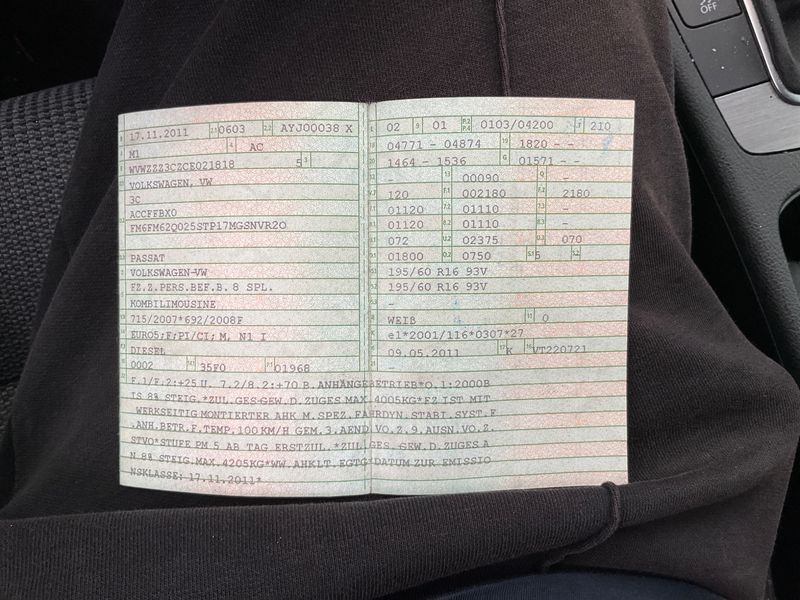 17.11.2011 2.1 0603 2.2 AYJ00038 X
M1 4 AC
WVWZZZ3CZCE021818 3 5
VOLKSWAGEN, VW
3C
ACCFFBX0
FM6FM62Q025STP17MGSNVR2O
PASSAT
VOLKSWAGEN-VW
FZ.Z.PERS.BEF.B. 8 SPL.
KOMBILIMOUSINE
715/2007*692/2008F
EURO5;F;PI/CI; M, N1 I
DIESEL
0002 14.1 35F0 P.1 01968
02 9 01 P.2 P.4 0103/04200 T 210
18 04771 - 04874 19 1820 - -
20 1464 - 1536 G 01571 - -
- 13 00090 Q -
120 F.1 002180 F.2 2180
01120 7.2 01110 7.3 -
01120 8.2 01110 8.3 -
072 U.2 02375 U.3 070
01800 O.2 0750 S.1 5 S.2
195/60 R16 93V
195/60 R16 93V
-
WEIß 11 0
e1*2001/116*0307*27
09.05.2011 17 K 16 VT220721
-
F.1/F.2:+25 U. 7.2/8.2:+70 B.ANHÄNGEBETRIEB*O.1:2000B
IS 8% STEIG.*ZUL.GES-GEW.D.ZUGES MAX.4005KG*FZ IST MIT
WERKSEITIG MONTIERTER AHK M.SPEZ.FAHRDYN.STABI.SYST.F
.ANH.BETR.F.TEMP.100 KM/H GEM.3.AEND.VO.Z.9.AUSN.VO.Z.
STVO*STUFE PM 5 AB TAG ERSTZUL.*ZUL.GES-GEW.D.ZUGES A
N 8% STEIG.MAX.4205KG*WW.AHKLT.EGTG*DATUM ZUR EMISSIO
NSKLASSE: 17.11.2011*
OFF